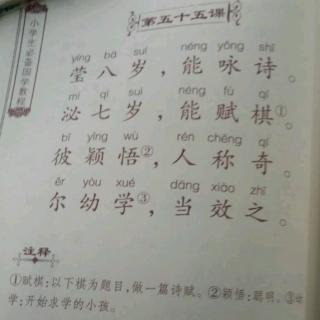 小学生必备国学教程
第五十五课
yíng bā suì néng yǒng shī
莹八岁，能咏诗。
mì qī suì néng fù qí
泌七岁，能赋棋①。
bǐ yǐng wù rén chēng qí
彼颖悟②，人称奇。
ěr yòu xué dāng xiào zhī
尔幼学③，当效之。
注释
①赋棋：以下棋为题目，做一篇诗赋。②颖悟：聪明。③幼
学：开始求学的小孩。